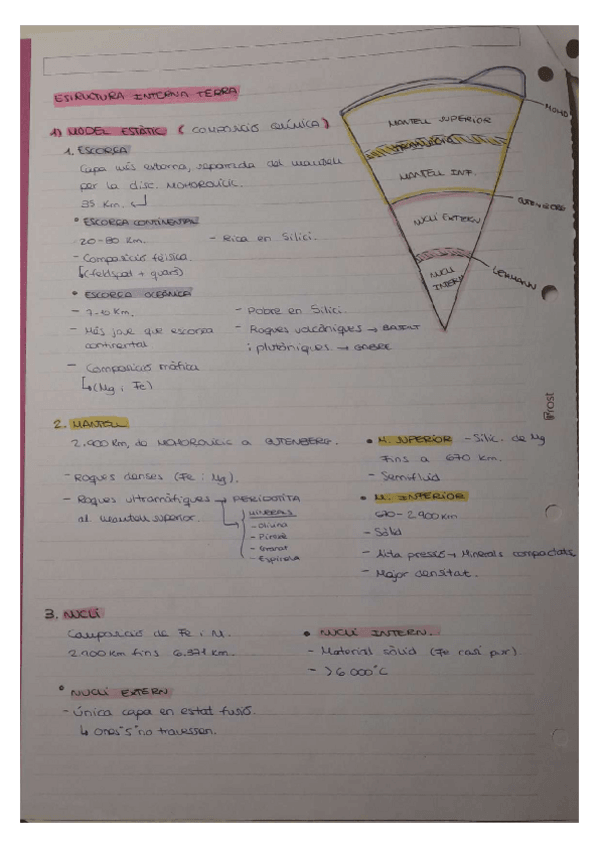 ESTRUCTURA INTERNA TERRA
1) MODEL ESTÀTIC (COMPOSICIÓ QUÍMICA)
1. ESCORÇA
Capa més externa, separada del mantell
per la disc. MOHOROVICIC.
35 Km.
• ESCORÇA CONTINENTAL
20-80 Km.
- Rica en Silici.
- Composició fèlsica
(feldspat + quars)
• ESCORÇA OCEÀNICA
- 7-10 Km.
- Més jove que escorça
continental
- Composició màfica
(Mg i Fe)
- Pobre en Silici.
- Roques volcàniques → BASALT
i plutòniques. → GABRE
MANTELL SUPERIOR
MANTELL INF.
NUCLI EXTERN
NUCLI
INTERN
MOHO
GUTENBERG
LEHMANN
2. MANTELL
2.900 Km, de MOHOROVICIC a GUTENBERG.
- Roques denses (Fe i Mg).
- Roques ultramàfiques → PERIDOTITA
al mantell superior.
MINERALS
- Olivina
- Piroxè
- Granat
- Espinela
• M. SUPERIOR - Silic. de Mg
Fins a 670 km.
- Semifluid
• M. INFERIOR
670-2.900 Km.
- Sòlid
- Alta pressió → Minerals compactats
- Major densitat.
3. NUCLI
Composició de Fe i Ni.
2.900 Km fins 6.371 Km.
• NUCLI EXTERN
- Única capa en estat fusió.
↳ Ones "S" no travessen.
• NUCLI INTERN.
- Material sòlid (Fe casi pur)
- >6.000°C
Prost